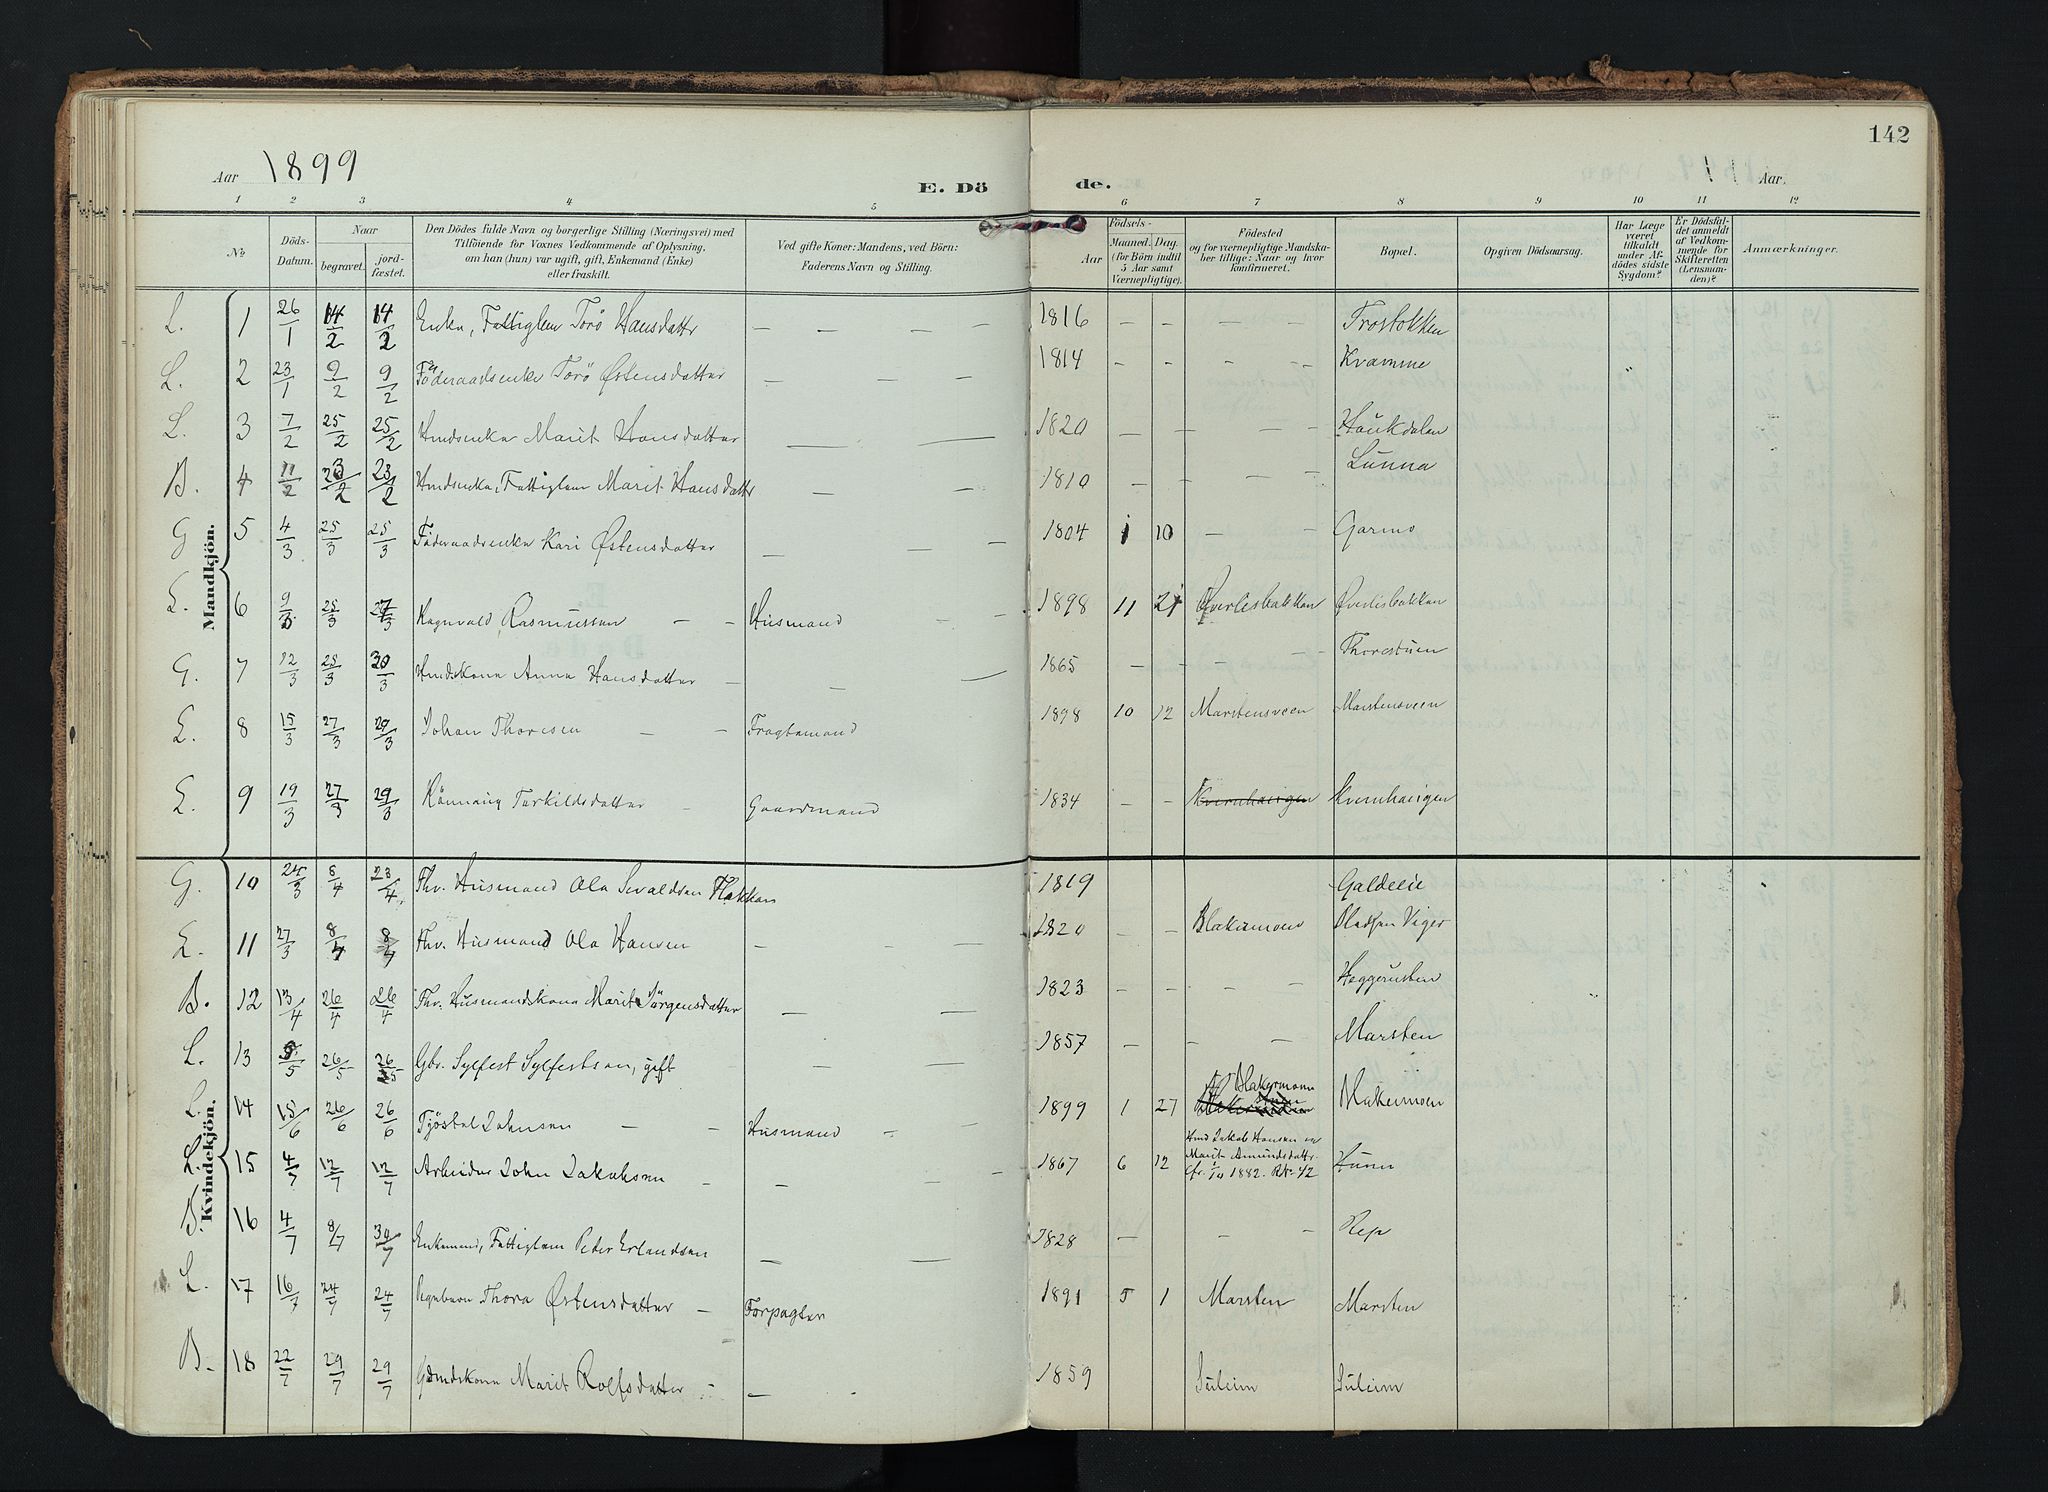 142
Aar 1899
E. Dö de.
Aar.
1 2 3 4 5 6 7 8 9 10 11 12
Nº
Döds-Datum.
Naar
begravet.
jord-fæstet.
Den Dödes fulde Navn og borgerlige Stilling (Næringsvei) med
Tilföiende for Voxnes Vedkommende af Oplysning,
om han (hun) var ugift, gift, Enkemand (Enke)
eller fraskilt.
Ved gifte Koner: Mandens, ved Börn:
Faderens Navn og Stilling.
Födsels-
Aar
Maaned. Dag.
(for Börn indtil
5 Aar samt
Værnepligtige).
Födested
og for værnepligtige Mandska-
ber tillige: Naar og hvor
konfirmeret.
Bopæl.
Opgiven Dödsaarsag.
Har Læge
været
tilkaldt
under Af-
dödes sidste
Sygdom?
Er Dödsfal-
det anmeldt
af Vedkom-
mende for
Skifteretten
(Lensman-
den)?
Anmærkninger.
Mandkjön.
Kvindekjön.
L. 1 26/1 14/2 14/2 Enke, Fattiglem Torö Hansdattr — — — 1816 — — — — Trostokken
L. 2 23/1 9/2 9/2 Föderaadsenke Torö Østensdatter — — — 1814 — — — — Kvamme
L. 3 7/2 25/2 25/2 Hmdsenke Marit Hansdatter — — 1820 — — — — Haukdalen
B. 4 11/2 23/2 23/2 Hmdsenke, Fattiglem Marit Hansdattr — — 1810 — — — — Lunna
G 5 4/3 25/3 25/3 Föderaadsenke Kari Østensdatter — — — 1804 1 10 — — Garmo
L. 6 9/3 25/3 27/3 Ragnvald Rasmussen — — Husmand — — 1898 11 21 Øverlisbakken Øverlisbakken
G. 7 12/3 25/3 30/3 Hmdskone Anne Hansdatter — — — 1865 — — — — Thorestuen
L. 8 15/3 27/3 29/3 Johan Thoresen — — Fragtemand 1898 10 12 Marstensveen Marstensveen
L. 9 19/3 27/3 29/3 Rönnaug Torkildsdatter — Gaardmand 1834 — — Kvernhaugen Kvernhaugen
G. 10 24/3 8/4 23/4 Fhv. Husmand Ola Sevaldsen Flakken 1819 Galdelie
L. 11 27/3 8/4 8/4 Fhv. Husmand Ola Hansen — — — 1820 — — Blakarmoen Pladsen Viger
B. 12 13/4 26/4 26/4 Fhv. Husmandskone Marit Jörgensdatter — — 1823 — — — — Heggerusten
L. 13 5/5 26/5 26/5 Gbr. Sylfest Sylfestsen, gift — — 1857 — — — Marsten
L. 14 15/6 26/6 26/6 Tjöstel Johnsen — — Husmand — — 1899 1 27 Blakarmoen Blakermoen
L. 15 4/7 12/7 12/7 Arbeider John Jakobsen — — — — 1867 6 12 Hmd Jakob Hansen og
Marit Amundsdattr.
cfr. 1/10 1882. R. No 42
16 4/7 8/7 30/7 Enkemand, Fattiglem Peder Erlandsen — — 1828 — — — Rep
L. 17 16/7 24/7 24/7 Pigebarn Thora Østensdatter — Forpagter 1891 5 1 Marsten Marsten
B. 18 22/7 29/7 29/7 Gmdskone Marit Rolfsdatter — — 1859 Suleim Suleim